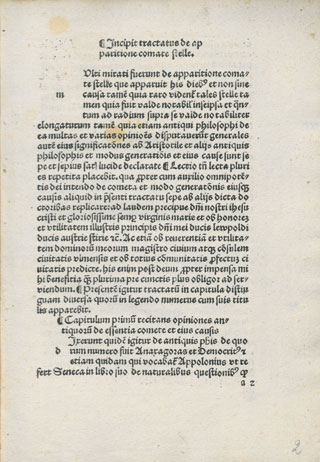 ¶ Incipit tractatus de ap
paritione comate stelle.
Ulti mirati fuerunt de apparitione coma-
te stelle que apparuit his diebꝰ et non sine
m causa tamē quia raro videntʳ tales stelle ta
men quia fuit valde notabił inseipsa et q̄n-
tum ad radium supra se valde notabiliter
elongatum tamē quia etiam antiqui philosophi de
ea multas et varias opiniōes disputauerūt generales
autē eius significatōnes ab Aristotile et alijs antiquis
philosophis et modus generationis et eius cause sunt se
pe et sepius satꝭ lucide declarate ¶ Lectio tn̄ lecta pluri
es repetita placebit. qua ꝓpter cum auxilio omnipotē-
tis dei intendo de cometa et modo generatōnis eiusqꝫ
causis aliquid in p̄senti tractatu sepe ab alijs dicta do
ctoribꝰ replicare ad laudem precipue dn̄i nostri ihesu
cristi et gloriosissime semꝑ virginis marie et ob honorē
et vtilitatem illustris principis dn̄i mei ducis leopoldi
ducis austrie stirie ⁊c̄. Ac etiā ob reuerentiā et vtilita
tem dominorū meorum magistro ciuium atqꝫ cōsulem
ciuitatis viennensis et ob totius cōmunitatis ꝓfectū ci
uitatis predicte. his enim post deum ꝓpter impensa mi
hi beneficia qꝫ plurima pre cunctis plus obligor ad ser-
uiendum. ¶ Presentē igitur tractatū in capitula distin
guam diuersa quorū in legendo numerus cum suis titu
lis apparebit.
¶ Capitulum primū recitans opiniones an-
tiquorū de essentia comete et eius causis
Ixerunt quidē igitur de antiquis phis de quo
d rum numero fuit Anaxagoras et Democritꝰ
etiam quidam qui vocabatʳ Appolonius vt re
fert Seneca in libro suo de naturalibus questionibꝰ ꝙ
a 2
2